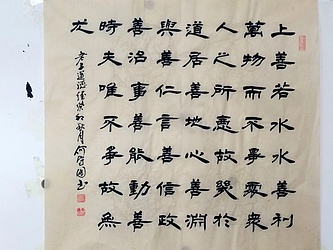 上善若水水善利
萬物而不爭處衆
人之所惡故幾於
道居善地心善淵
與善仁言善信政
善治事善能動善
時夫唯不爭故無
尤
老子道德經 秋月何 書